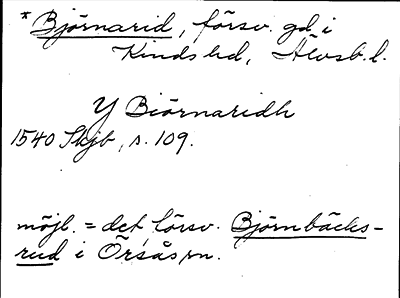 * Björnarid, försv. gd. i
Kinds hd, Älvsb. l.
Y Biörnaridh
1540 Skjb, s. 109.
möjl. = det försv. Björnbäcks-
rud i Örsås sn.